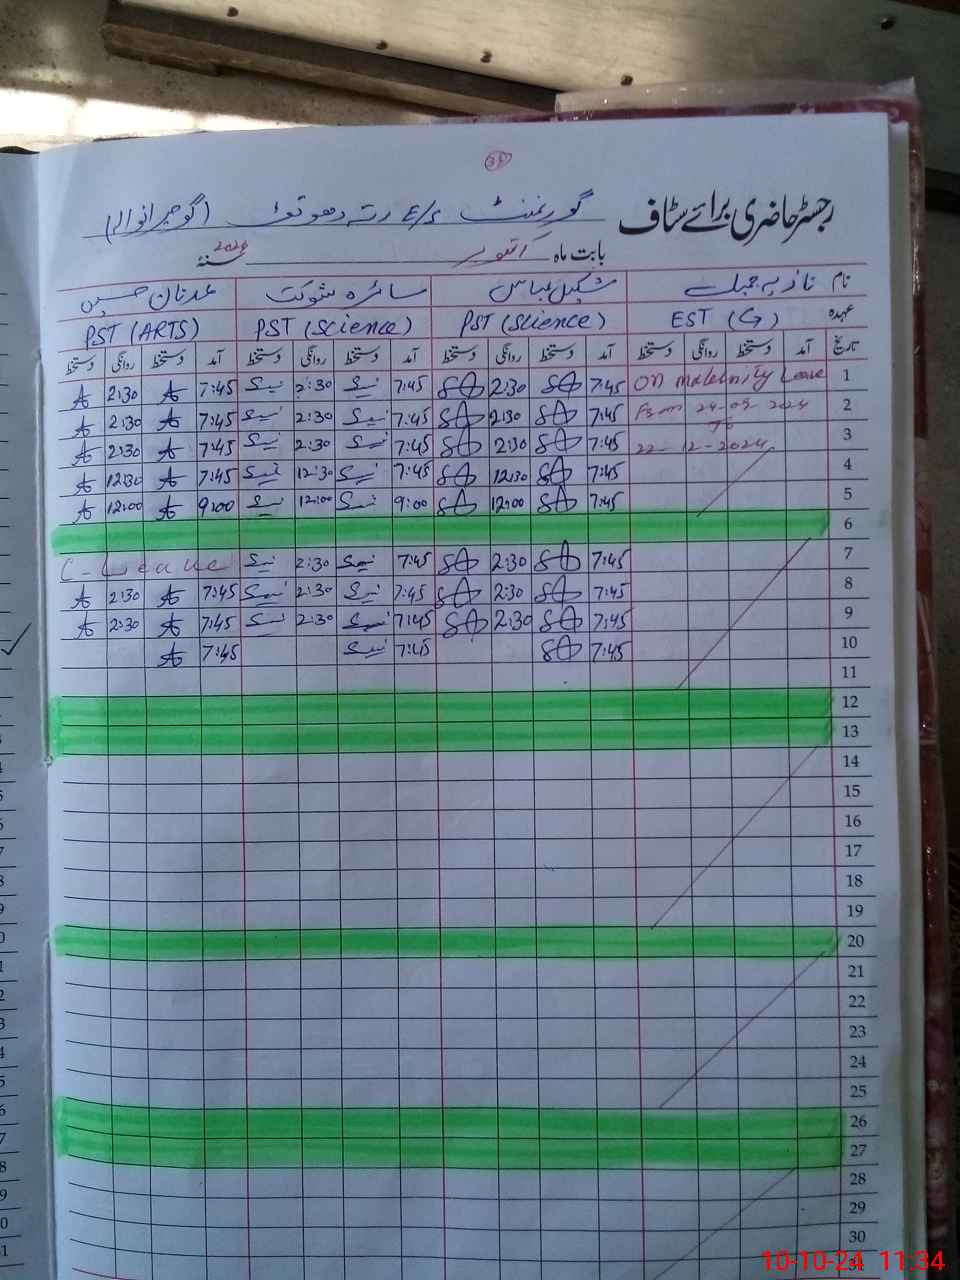 31
رجسٹر حاضری برائے سٹاف گورنمنٹ E/S رتہ دھوتڑ (گوجرانوالہ)
بابت ماہ اکتوبر سنہ 2024
نام نازیہ شکیل عباس سائرہ شوکت عدنان حسین
عہدہ EST (G) PST (Science) PST (Science) PST (ARTS)
تاریخ آمد دستخط روانگی دستخط آمد دستخط روانگی دستخط آمد دستخط روانگی دستخط آمد دستخط روانگی دستخط
1 On maternity Leave 7:45 2:30 7:45 2:30 7:45 2:30
2 From 24-09-2024 7:45 2:30 7:45 2:30 7:45 2:30
To
3 22-12-2024 7:45 2:30 7:45 2:30 7:45 2:30
4 7:45 12:30 7:45 12:30 7:45 12:30
5 7:45 12:00 9:00 12:00 9:00 12:00
6
7 7:45 2:30 7:45 2:30 C-Leave
8 7:45 2:30 7:45 2:30 7:45 2:30
9 7:45 2:30 7:45 2:30 7:45 2:30
10 7:45 7:45 7:45
11
12
13
14
15
16
17
18
19
20
21
22
23
24
25
26
27
28
29
30
31
10-10-24 11:34